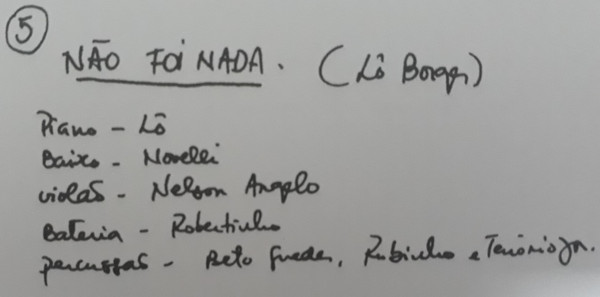 5
NÃO FOI NADA. (Lô Borges)
Piano - Lô
Baixo - Novelli
violão - Nelson Angelo
Bateria - Robertinho
percussão - Beto Guedes, Rubinho e Tenório Jr.